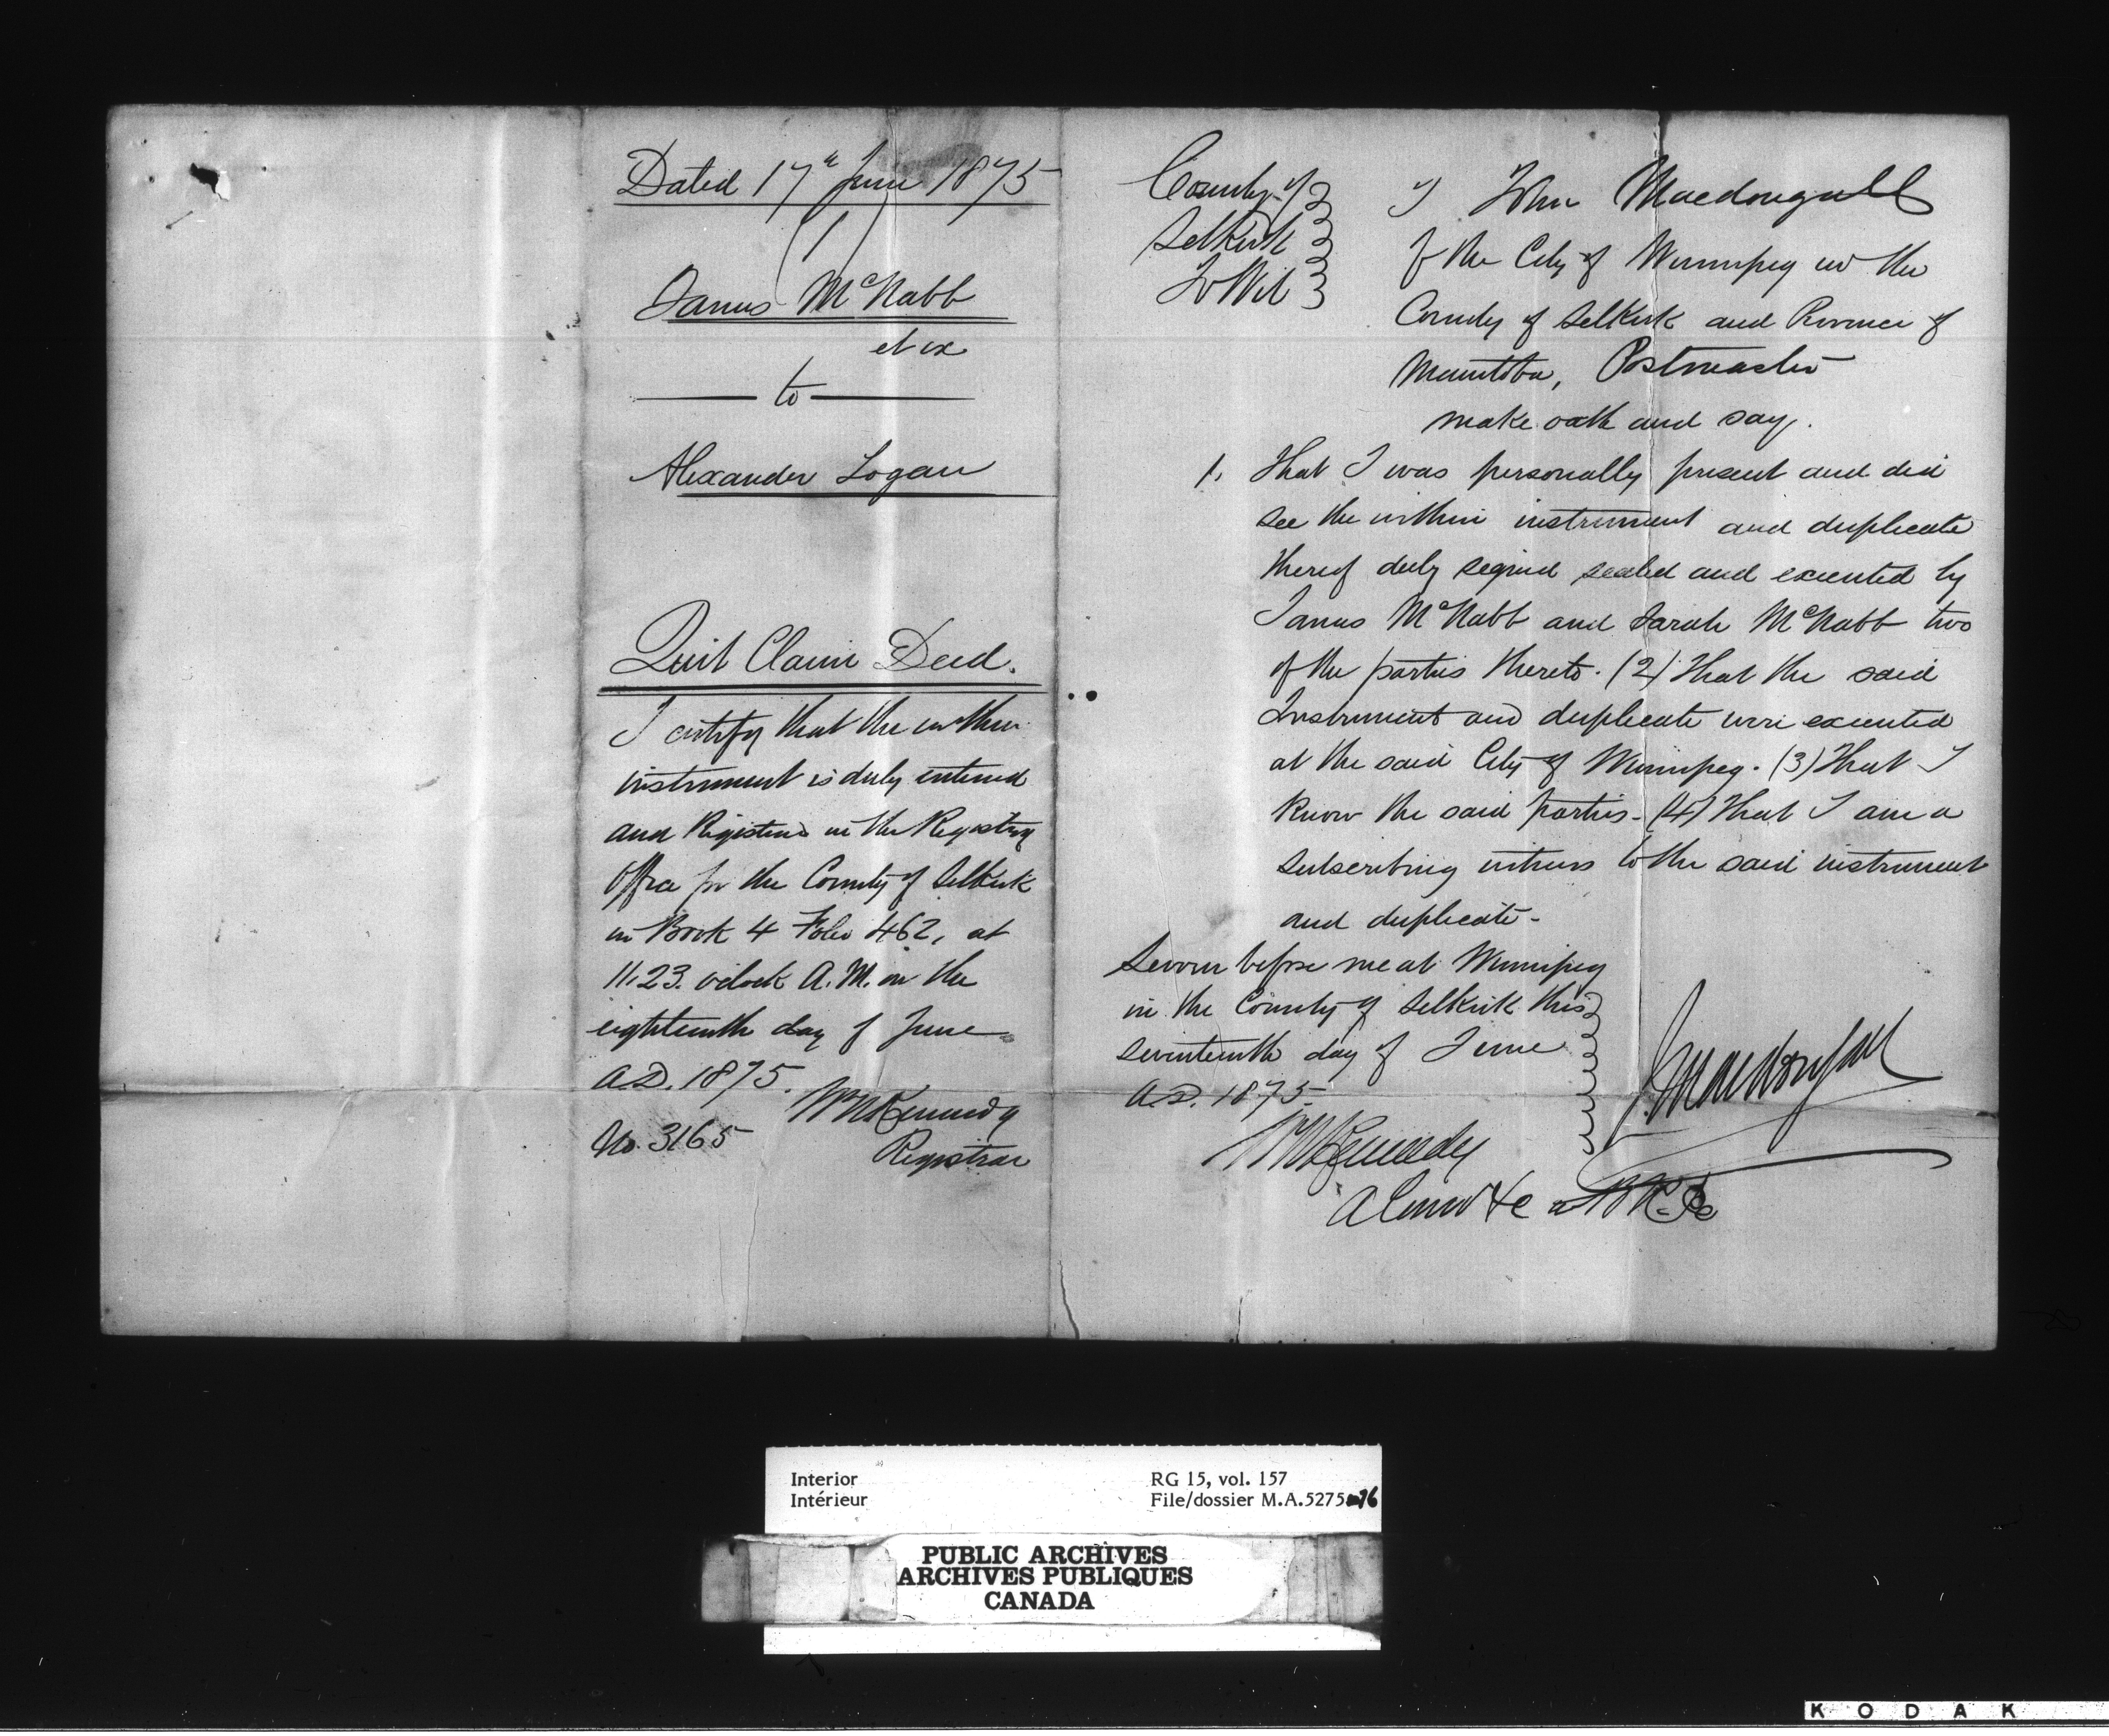 Dated 17th June 1875
James McNabb
et ux
to
Alexander Logan
Quit Claim Deed.
I certify that the within
instrument is duly entered
and Registered in the Registry
Office for the County of Selkirk
in Book 4 Folio 462, at
11.23. oclock A.M. on the
eighteenth day of June
A.D. 1875.
No. 3165 WNKennedy
Registrar
County of
Selkirk
To Wit
I John Macdougall
of the City of Winnipeg in the
County of Selkirk and Province of
Manitoba, Postmaster
make oath and say.
1. That I was personally present and did
see the within instrument and duplicate
thereof duly signed sealed and executed by
James McNabb and Sarah McNabb two
of the parties thereto. (2) That the said
Instrument and duplicate were executed
at the said City of Winnipeg. (3) That I
know the said parties - (4) That I am a
subscribing witness to the said instrument
and duplicate -
Sworn before me at Winnipeg
in the County of Selkirk this
seventeenth day of June
A.D. 1875.
J. Macdougall
WNKennedy
A Comr &c
Interior
Intérieur
RG 15, vol. 157
File/dossier M.A.5275
76
PUBLIC ARCHIVES
ARCHIVES PUBLIQUES
CANADA
KODAK